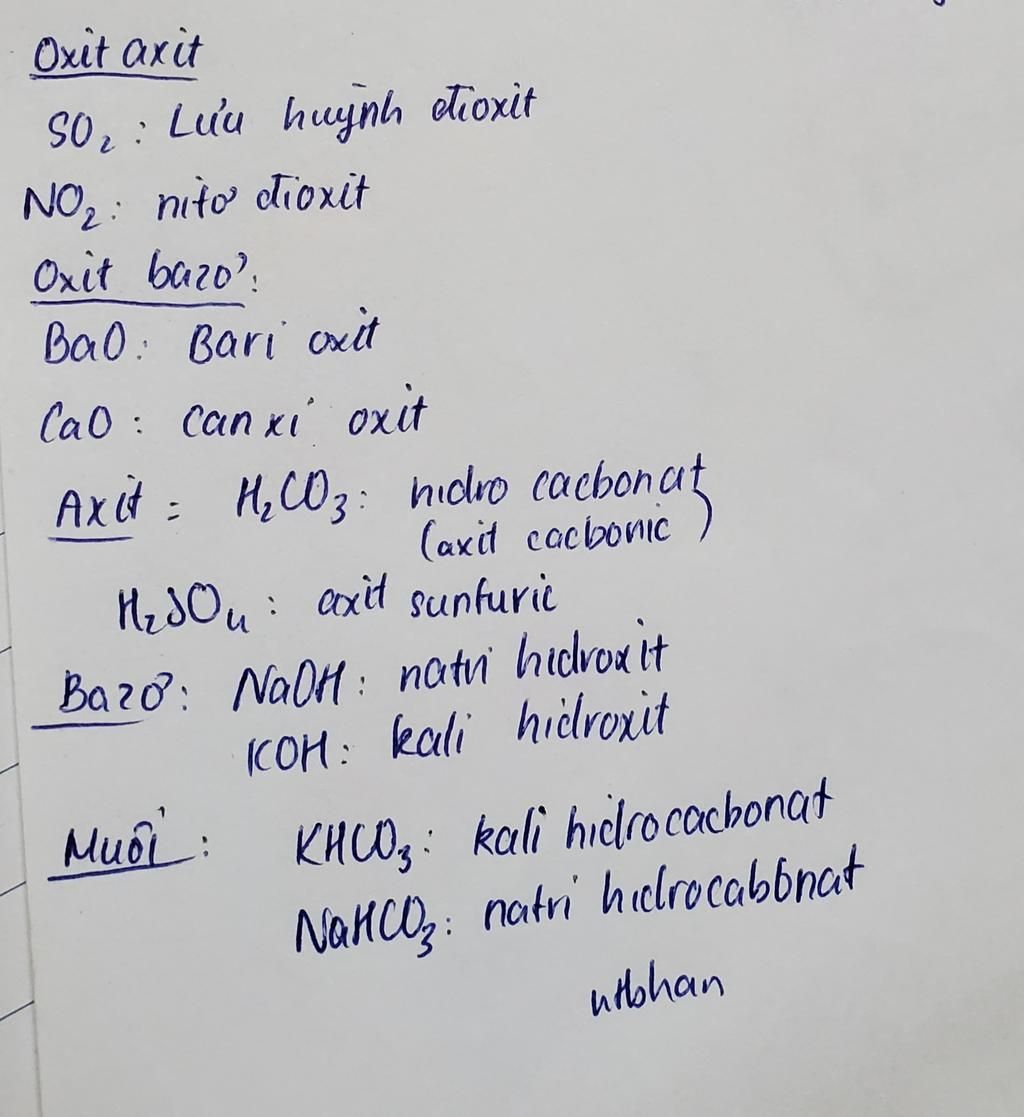 Oxit axit
SO₂: Lưu huỳnh đioxit
NO₂: nitơ đioxit
Oxit bazơ:
BaO: Bari oxit
CaO: canxi oxit
Axit: H₂CO₃: hidro cacbonat
(axit cacbonic)
H₂SO₄: axit sunfuric
Bazơ: NaOH: natri hidroxit
KOH: kali hidroxit
Muối: KHCO₃: kali hidrocacbonat
NaHCO₃: natri hidrocabbnat